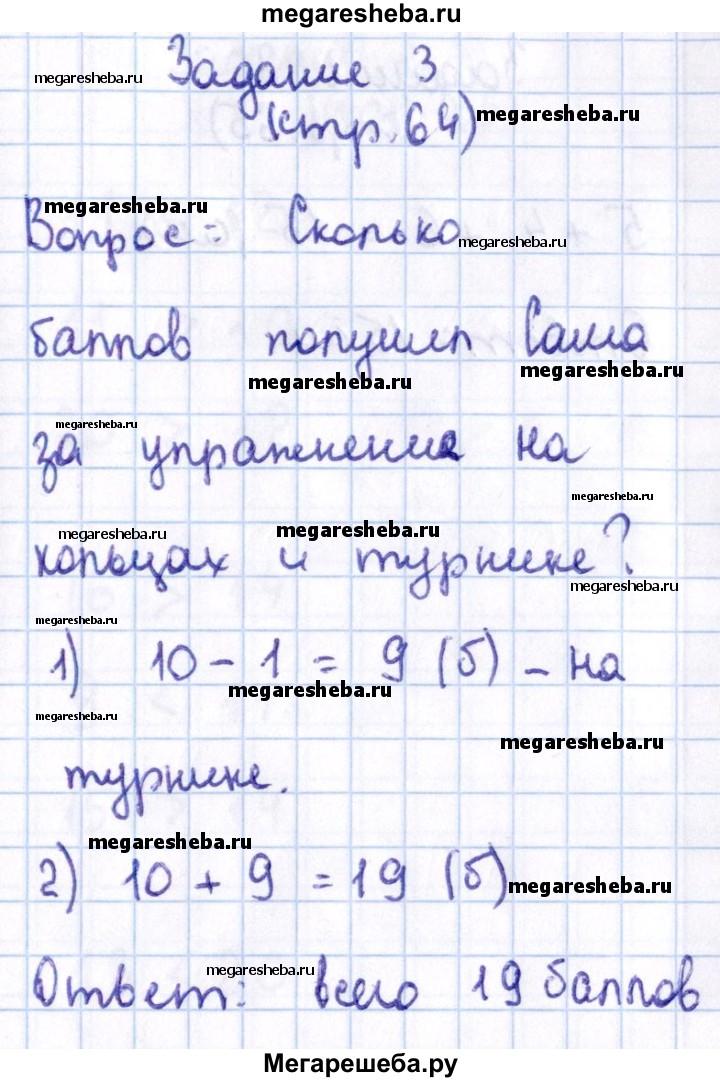 megaresheba.ru
megaresheba.ru Задание 3
(стр. 64) megaresheba.ru
megaresheba.ru
Вопрос: Сколько megaresheba.ru
баллов получил Саша
megaresheba.ru megaresheba.ru
megaresheba.ru
за упражнение на
megaresheba.ru
megaresheba.ru megaresheba.ru
кольцах и турнике?
megaresheba.ru
megaresheba.ru
1) 10 - 1 = 9 (б) - на
megaresheba.ru
megaresheba.ru
megaresheba.ru
турнике.
megaresheba.ru
2) 10 + 9 = 19 (б) megaresheba.ru
megaresheba.ru
Ответ: всего 19 баллов
Мегарешеба.ру